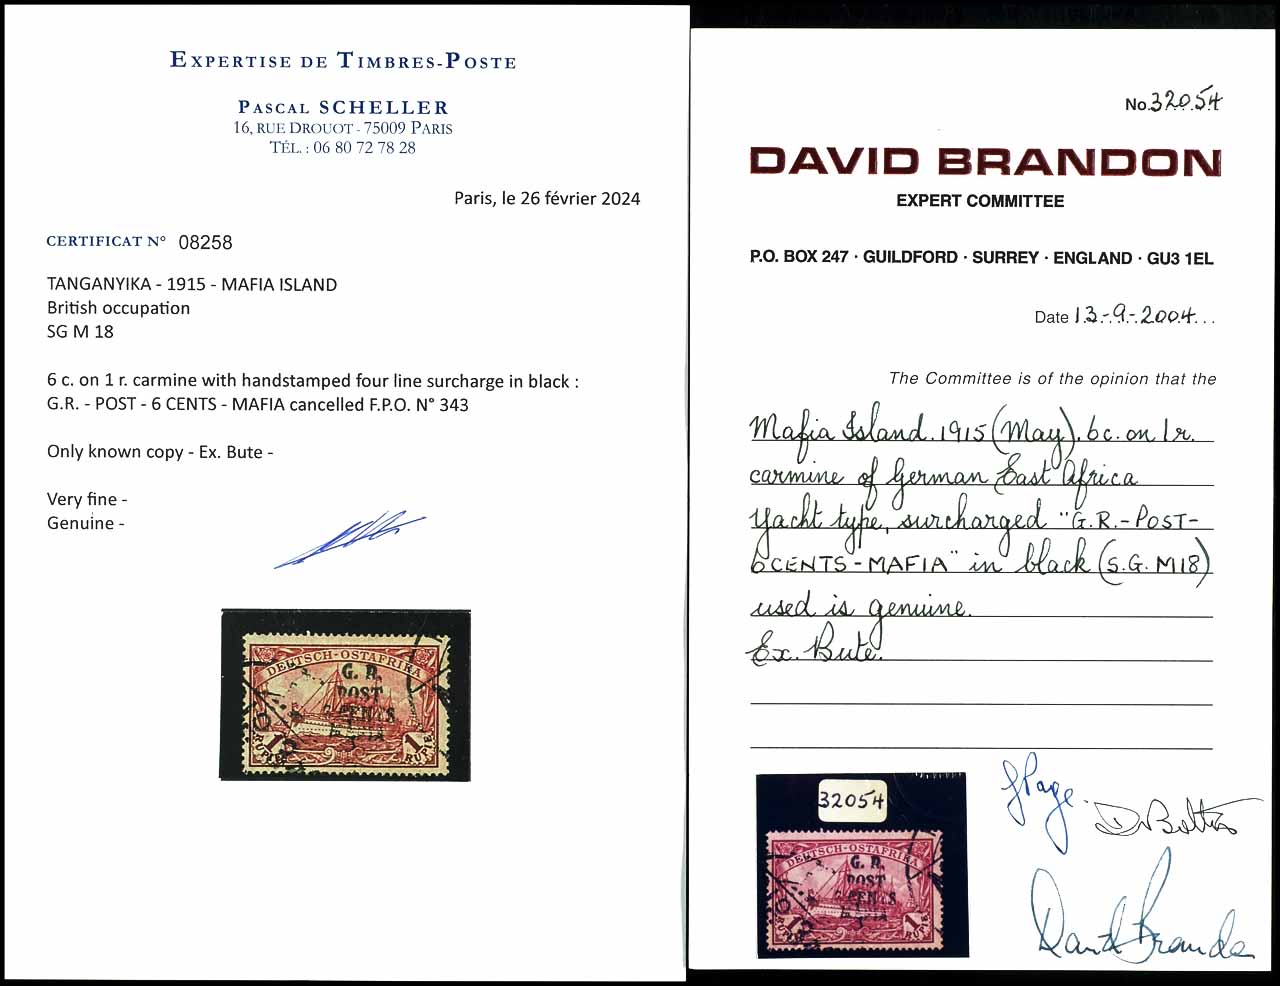 EXPERTISE DE TIMBRES-POSTE
PASCAL SCHELLER
16, RUE DROUOT - 75009 PARIS
TÉL. : 06 80 72 78 28
Paris, le 26 février 2024
CERTIFICAT N° 08258
TANGANYIKA - 1915 - MAFIA ISLAND
British occupation
SG M 18
6 c. on 1 r. carmine with handstamped four line surcharge in black :
G.R. - POST - 6 CENTS - MAFIA cancelled F.P.O. N° 343
Only known copy - Ex. Bute -
Very fine -
Genuine -
DEUTSCH-OSTAFRIKA
G. R.
POST
CENTS
1 1
RUPIE RUPIE
No. 32054
DAVID BRANDON
EXPERT COMMITTEE
P.O. BOX 247 · GUILDFORD · SURREY · ENGLAND · GU3 1EL
Date 13.-9.-2004...
The Committee is of the opinion that the
Mafia Island. 1915 (May). 6c. on 1r.
carmine of German East Africa
Yacht type, surcharged "G.R.-POST-
6CENTS-MAFIA" in black (S.G. M18)
used is genuine.
Ex. Bute.
32054
DEUTSCH-OSTAFRIKA
G. R.
POST
CENTS
1 1
RUPIE RUPIE
David Brandon